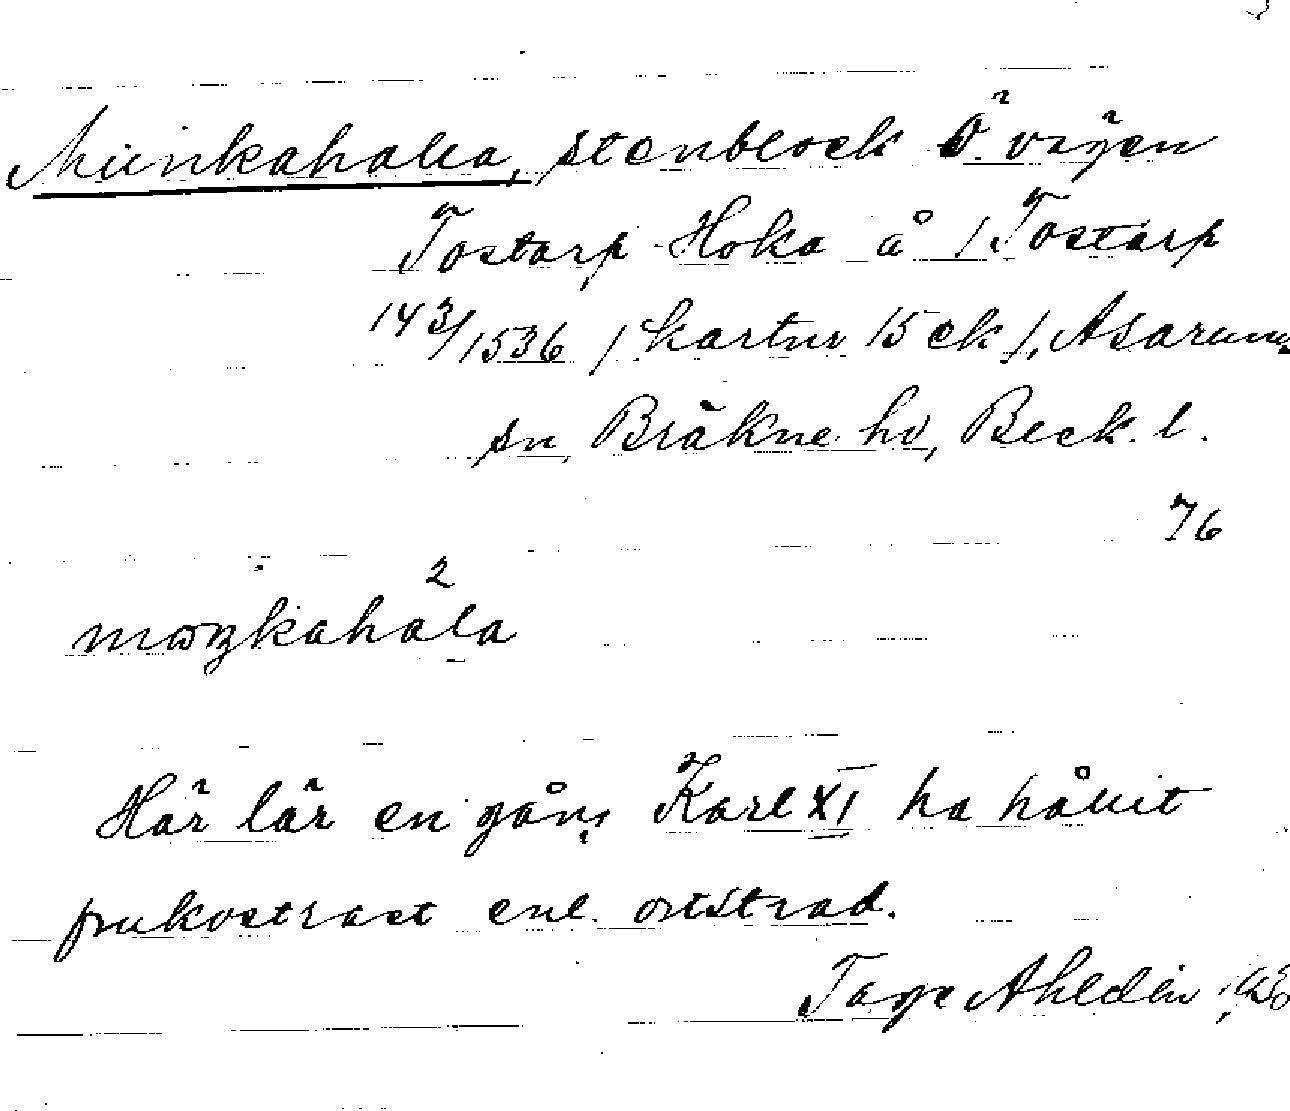 Munkahalla, stenblock Ö. vägen
Tostarp - Hoka å / Tostarp
143/1536 / kartnr 15 ek /, Asarums
sn, Bräkne hd, Bleck. l.
76
2
måŋkahala
Här lär en gång Karl XI ha hållit
frukostrast enl. ortstrad.
Tage Ahldén